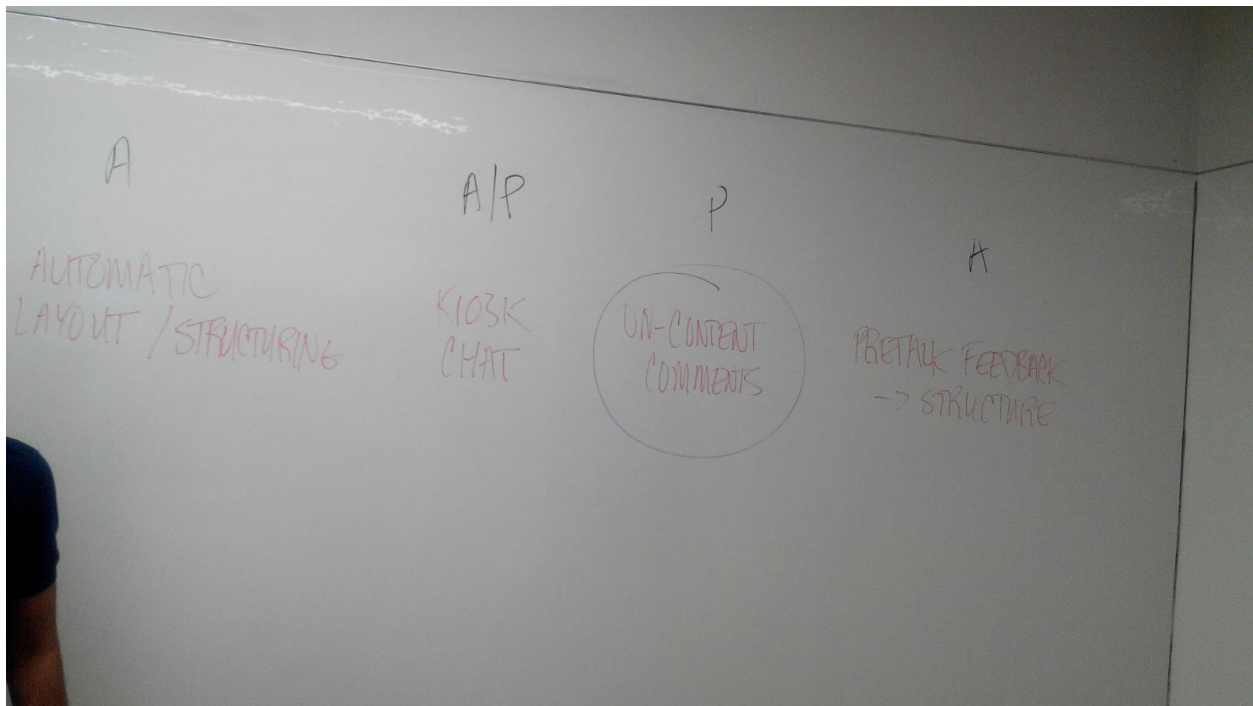 A
AUTOMATIC
LAYOUT / STRUCTURING
A/P
KIOSK
CHAT
P
ON-CONTENT
COMMENTS
A
PRETALK FEEDBACK
-> STRUCTURE